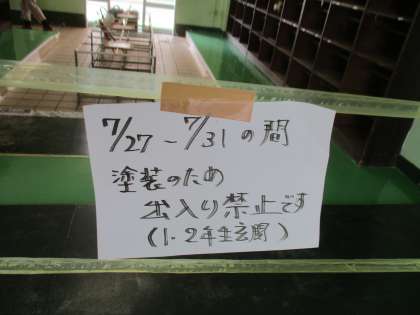 7/27～7/31の間
塗装のため
出入り禁止です
(1・2年生玄関)